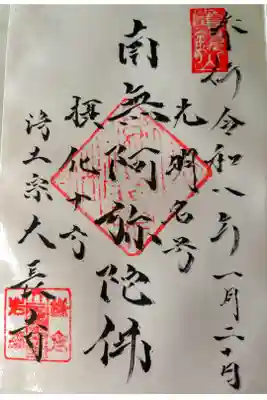 奉拝 令和八年一月二十日
光明名号
南無阿弥陀佛
摂化十方
浄土宗大長寺